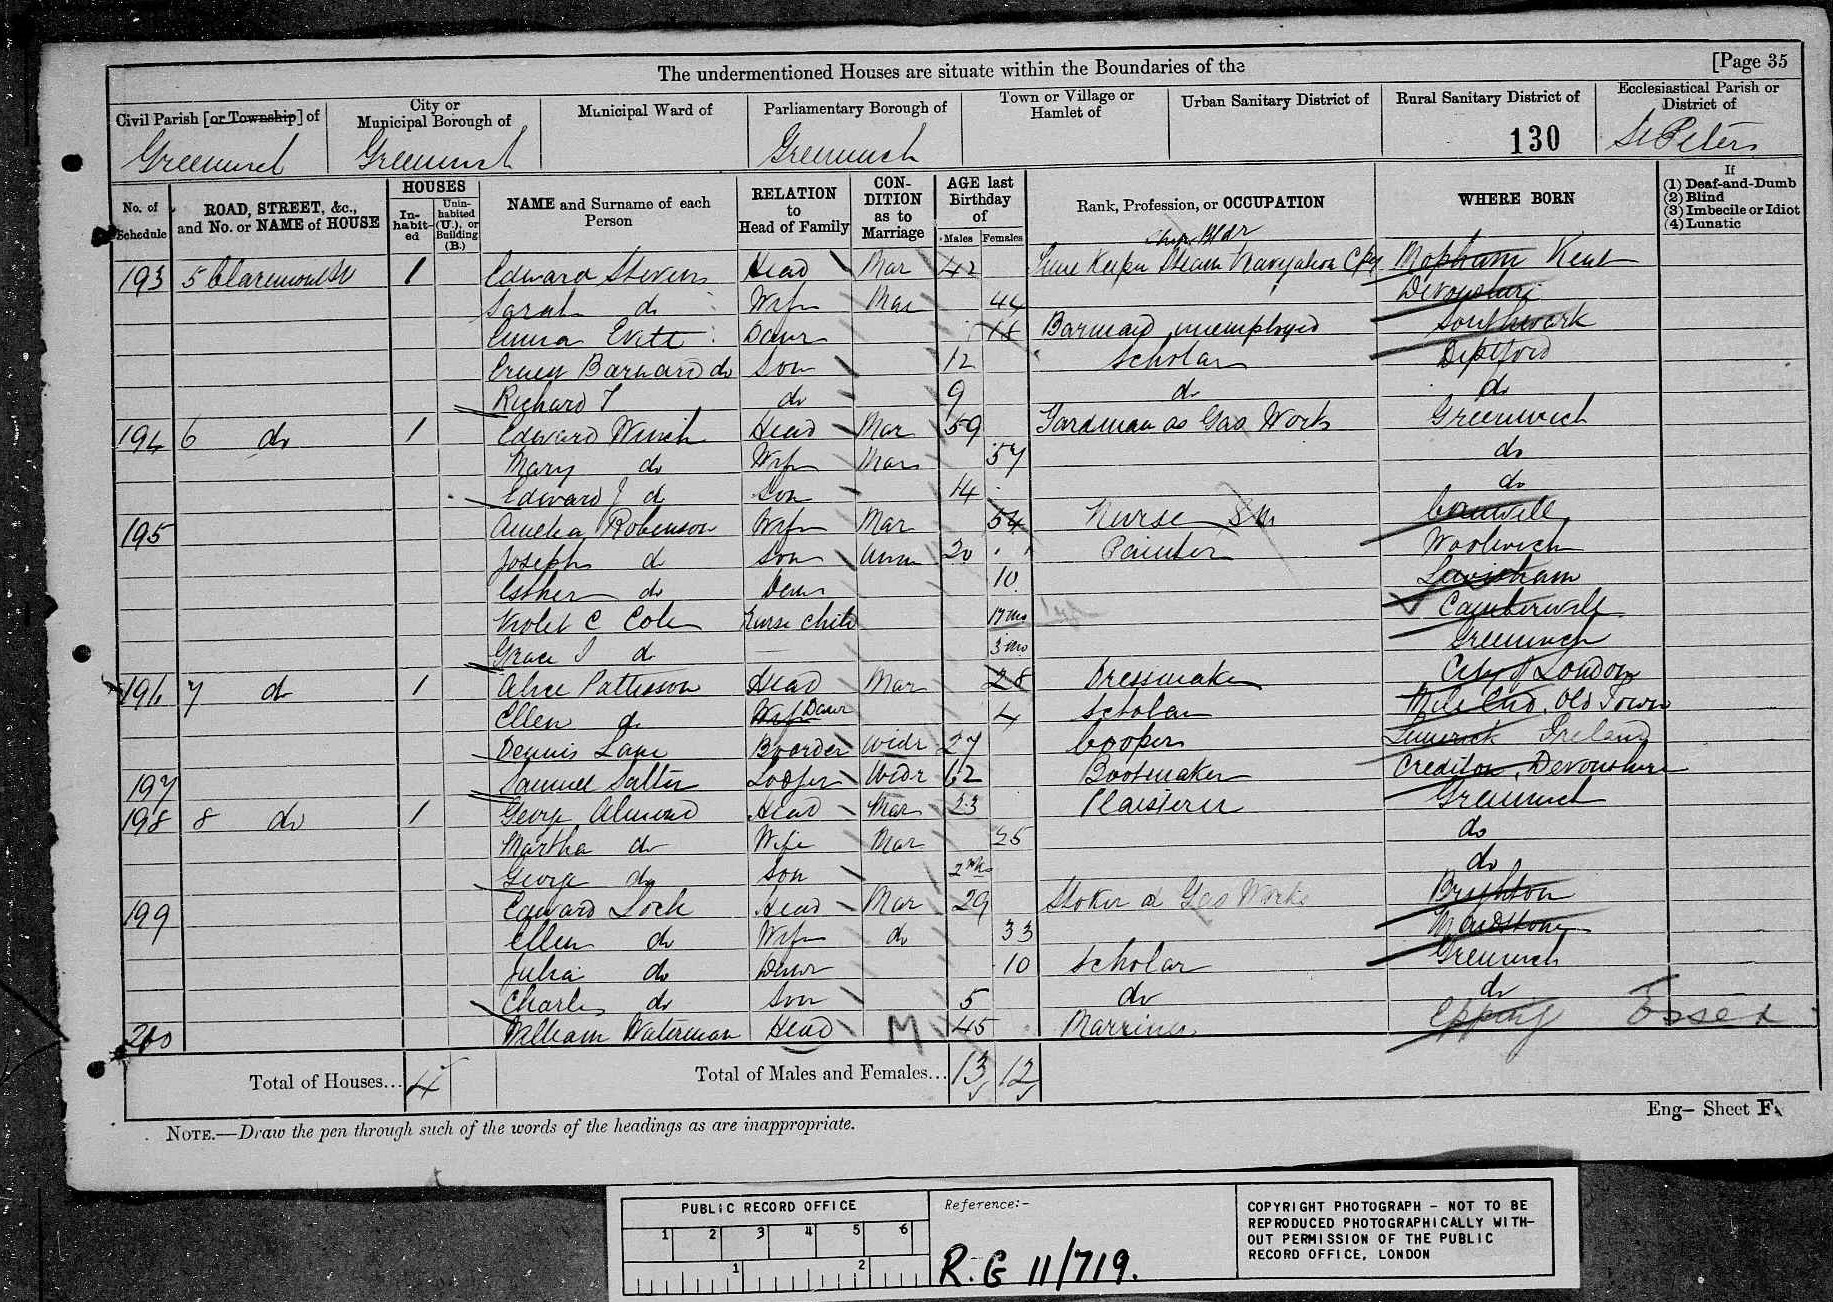 The undermentioned Houses are situate within the Boundaries of the [Page 35
Civil Parish [or Township] of City or Municipal Borough of Municipal Ward of Parliamentary Borough of Town or Village or Hamlet of Urban Sanitary District of Rural Sanitary District of Ecclesiastical Parish or District of
Greenwich Greenwich Greenwich 130 St Peters
No. of Schedule ROAD, STREET, &c., and No. or NAME of HOUSE HOUSES Inhabited Uninhabited (U.), or Building (B.) NAME and Surname of each Person RELATION to Head of Family CONDITION as to Marriage AGE last Birthday of Males Females Rank, Profession, or OCCUPATION WHERE BORN If (1) Deaf-and-Dumb (2) Blind (3) Imbecile or Idiot (4) Lunatic
193 5 Claremont St 1 Edward Stevens Head Mar 42 Time Keeper Steam Navigation Cpy Mopham Kent
Sarah do Wife Mar 44 Devonshire
Emma Evitt Daur 18 Barmaid unemployed Southwark
Barnard do Son 12 Scholar Deptford
Richard T do 9 do do
194 6 do 1 Edward Winch Head Mar 59 Yardman at Gas Works Greenwich
Mary do Wife Mar 57 do
Edward J do Son 14 do
195 Amelia Robinson Wife Mar 54 Nurse S M
Joseph do Son Unm 20 Painter Woolwich
Esther do Daur 10 Lewisham
Violet C Cole Nurse Child 17 mo Camberwell
Grace I do 3 mo Greenwich
196 7 do 1 Alice Pattisson Head Mar 28 Dressmaker City of London
Ellen do Wife Daur 4 Scholar Mile End Old Town
Dennis Lane Boarder Widr 27 Cooper Limerick Ireland
197 Samuel Salter Lodger Widr 62 Bootmaker Crediton, Devonshire
198 8 do 1 George Almond Head Mar 23 Plaisterer Greenwich
Martha do Wife Mar 25 do
George do Son 2 do
199 Edward Lock Head Mar 29 Stoker at Gas Works Brighton
Ellen do Wife do 33 Maidstone
Julia do Daur 10 Scholar Greenwich
Charles do Son 5 do do
200 William Waterman Head M 45 Marriner Epping Essex
Total of Houses... 4 Total of Males and Females... 13 12
Eng— Sheet F.
NOTE.—Draw the pen through such of the words of the headings as are inappropriate.
PUBLIC RECORD OFFICE
1 2 3 4 5 6
1 2
Reference:-
R.G 11/719.
COPYRIGHT PHOTOGRAPH - NOT TO BE
REPRODUCED PHOTOGRAPHICALLY WITH-
OUT PERMISSION OF THE PUBLIC
RECORD OFFICE, LONDON